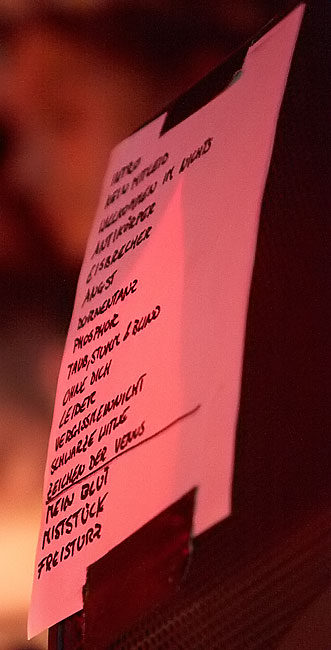 INTRO
KEIN MITLEID
WILLKOMMEN IM NICHTS
ANTIKÖRPER
EISBRECHER
ANGST
DORNENTANZ
PHOSPHOR
TAUB, STUMM & BLIND
OHNE DICH
LEIDER
VERGISSMEINNICHT
SCHWARZE WITWE
ZEICHEN DER VENUS
MEIN BLUT
MISTSTÜCK
FREISTURZ